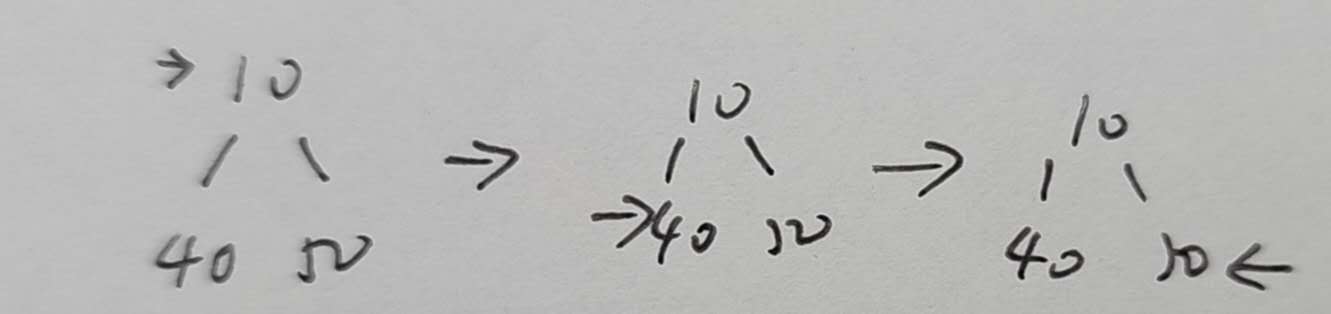 → 10
/ \
40 50
→
10
/ \
→40 50
→
10
/ \
40 50←